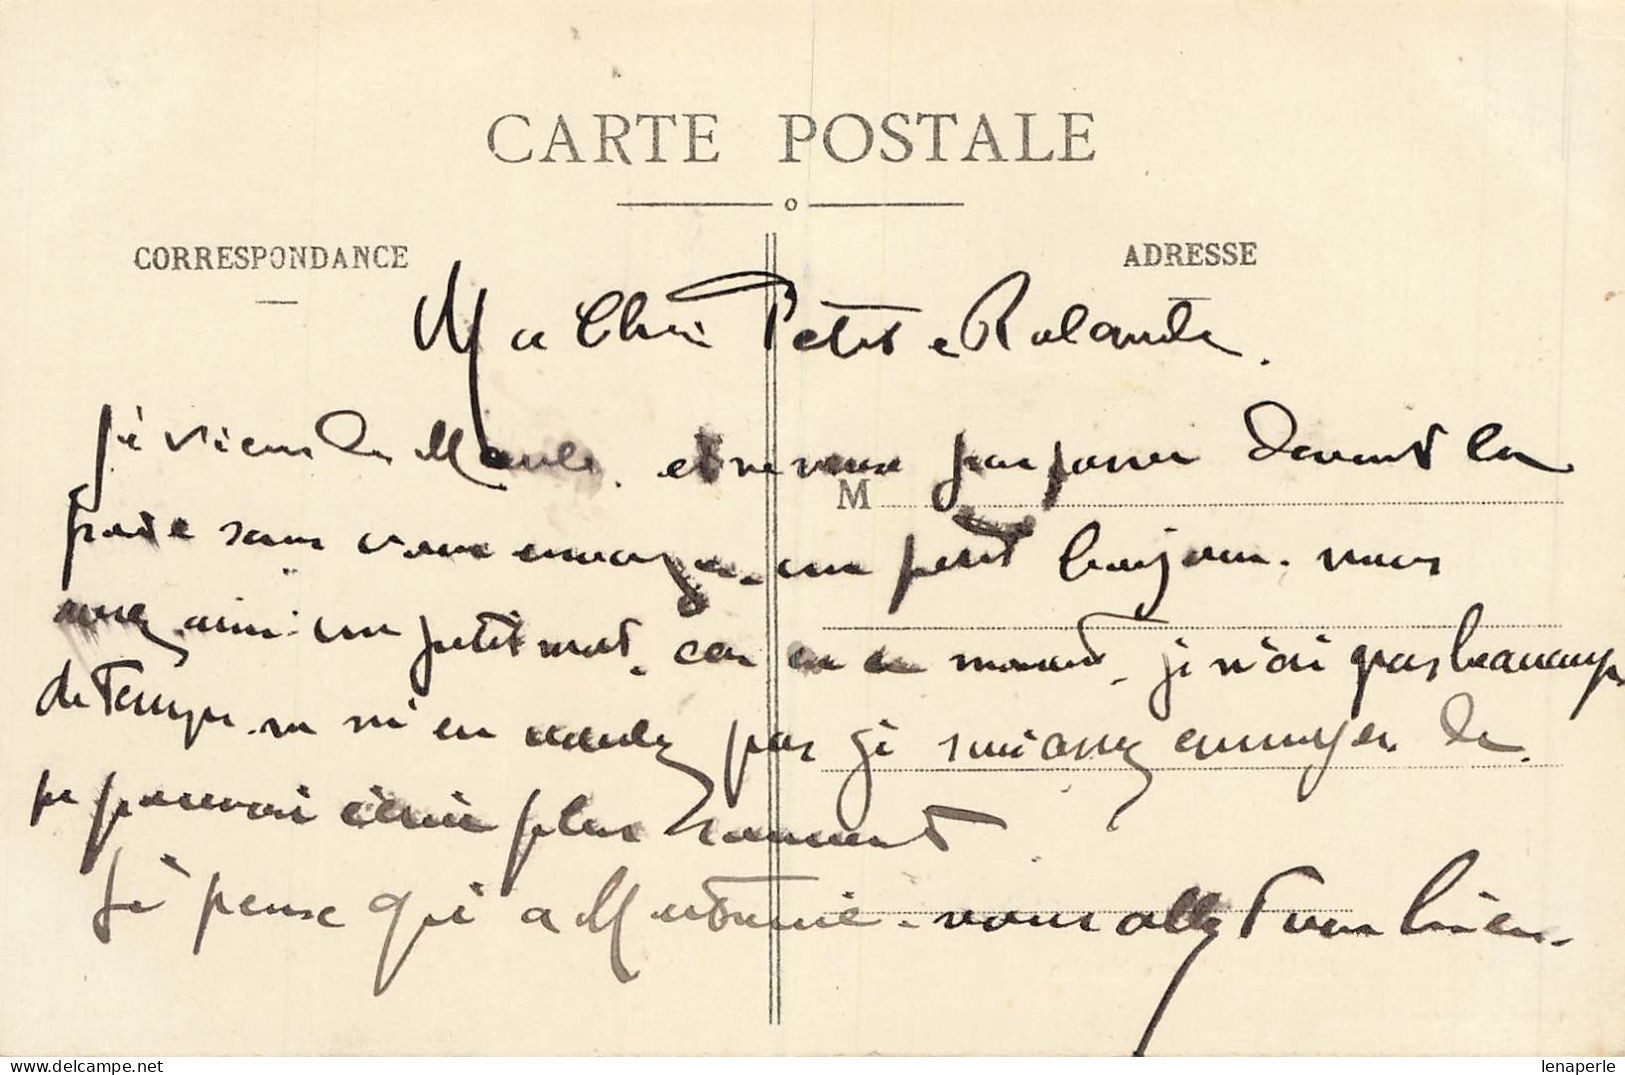 CARTE POSTALE
CORRESPONDANCE
ADRESSE
Ma Chère Petite Rolande.
Je viens de et ne veux pas passer devant la
M
poste sans vous envoyer un petit bonjour. vous
avez ainsi un petit mot. car en ce moment. je n'ai pas beaucoup
de temps. ne m'en voulez pas je suis assez ennuyer de
ne pouvoir écrire plus souvent
Je pense qui a vous allez tous bien.
lenaperle